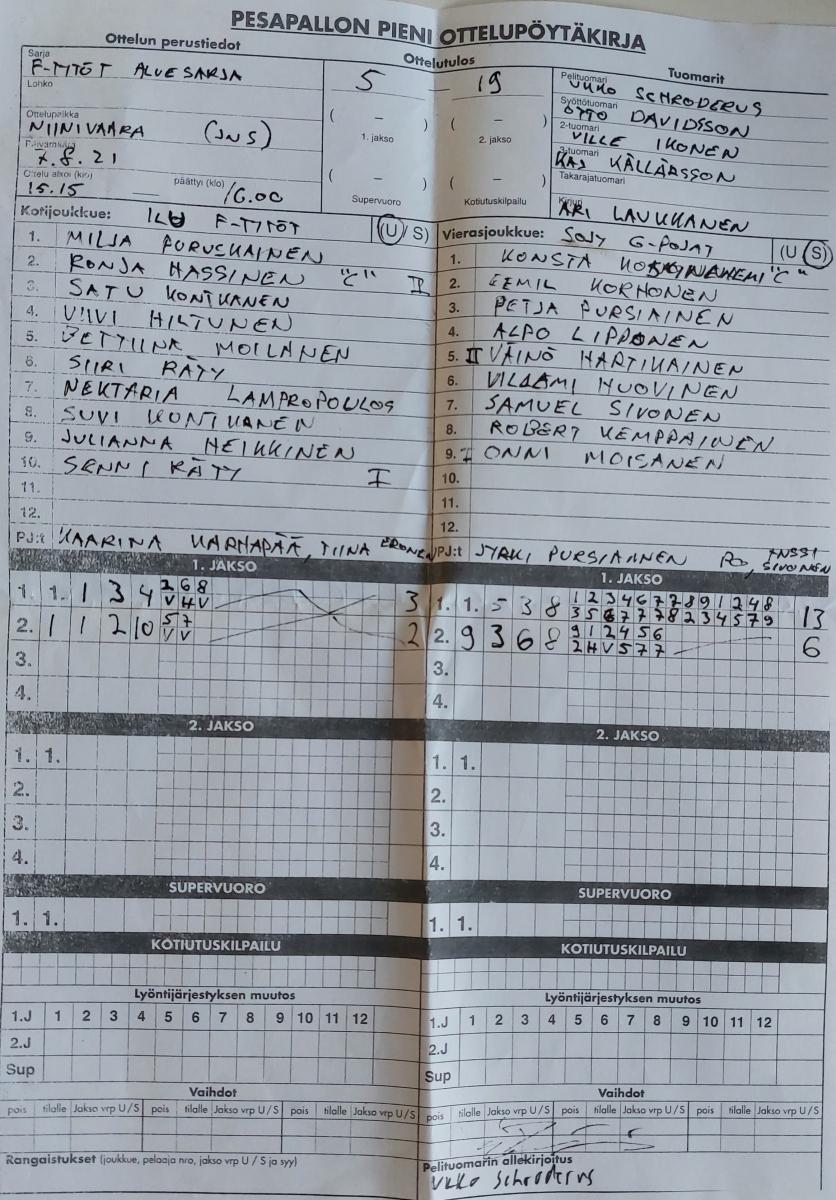 PESAPALLON PIENI OTTELUPÖYTÄKIRJA
Ottelun perustiedot
Ottelutulos
Tuomarit
Sarja
F-TITÖT ALUESARJA
Lohko
Ottelupaikka
NIINIVAARA (JNS)
Päivämäärä
7.8.21
Ottelu alkoi (klo) päättyi (klo)
15.15 16.00
5 – 19
( – ) ( – )
1. jakso 2. jakso
( – ) ( – )
Supervuoro Kotiutuskilpailu
Pelituomari
UKKO SCHRODERUS
Syöttötuomari
OTTO DAVIDSSON
2-tuomari
VILLE IKONEN
3-tuomari
KAJ KÄLLÄRSSON
Takarajatuomari
Kirjuri
ARI LAUKKANEN
Kotijoukkue: F-TITÖT (U / S)
1. MILJA PURUSKAINEN
2. RONJA HASSINEN "C" II
3. SATU KONTKANEN
4. VIIVI HILTUNEN
5. BETTIINA MOILANEN
6. SIIRI RÄTY
7. NEKTARIA LAMPROPOULOS
8. SUVI KONTKANEN
9. JULIANNA HEIKKINEN
10. SENNI RÄTY I
11.
12.
PJ:t KAARINA KARHAPÄÄ, TIINA ERONEN
Vierasjoukkue: SOJY G-POJAT (U / S)
1. KONSTA "C"
2. EEMIL KORHONEN
3. PETJA PURSIAINEN
4. ALPO LIPPONEN
5. II VÄINÖ HARTIKAINEN
6. VILJAMI HUOVINEN
7. SAMUEL SIVONEN
8. ROBERT KEMPPAINEN
9. I ONNI MOISANEN
10.
11.
12.
PJ:t JYRKI PURSIAINEN ANSSI SIVONEN
1. JAKSO
1. 1. 1 3 4 2 6 8 3
V H V
2. 1 1 2 10 5 7 2
V V
3.
4.
1. JAKSO
1. 1. 5 3 8 1 2 3 4 6 7 7 8 9 1 2 4 8 13
3 5 6 7 7 7 8 2 3 4 5 7 9
2. 9 3 6 8 9 1 2 4 5 6 6
2 H V 5 7 7
3.
4.
2. JAKSO
1. 1.
2.
3.
4.
2. JAKSO
1. 1.
2.
3.
4.
SUPERVUORO
1. 1.
SUPERVUORO
1. 1.
KOTIUTUSKILPAILU
KOTIUTUSKILPAILU
Lyöntijärjestyksen muutos
1.J 1 2 3 4 5 6 7 8 9 10 11 12
2.J
Sup
Lyöntijärjestyksen muutos
1.J 1 2 3 4 5 6 7 8 9 10 11 12
2.J
Sup
Vaihdot
pois tilalle Jakso vrp U / S pois tilalle Jakso vrp U / S pois tilalle Jakso vrp U / S
Vaihdot
pois tilalle Jakso vrp U / S pois tilalle Jakso vrp U / S pois tilalle Jakso vrp U / S
Rangaistukset (joukkue, pelaaja nro, jakso vrp U / S ja syy)
Pelituomarin allekirjoitus
Ukko Schroderus